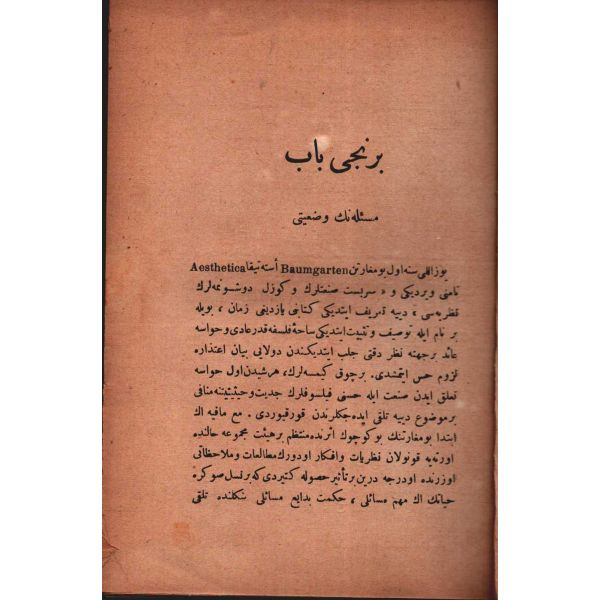 برنجی باب
مسئله‌نك وضعیتی
یوز اللی سنه اول بومغارتن Baumgarten أسته‌تیقا Aesthetica
نامنی ویردیكی و « سربست صنعتلرك و كوزل دوشونمه‌لرك
نظریه‌سی ، دییه تعریف ایتدیكی كتابنی یازدیغی زمان ، بویله
بر نام ایله توصیف و تثبیت ایتدیكی ساحۀ فلسفه قدر عادی و حواسه
عائد بر جهته نظر دقتی جلب ایتدیكندن دولایی بیان اعتذاره
لزوم حس ایتمشدی. برچوق كیمسه‌لرك، هر شیدن اول حواسه
تعلق ایدن صنعت ایله حسنی فیلسوفلرك جدیت و حیثیتیننه منافی
بر موضوع دییه تلقی ایده‌جكلرندن قورقیوردی . مع مافیه اك
ابتدا بومغارتنك بو كوچوك اثرنده منتظم بر هیئت مجموعه حالنده
اورته‌یه قونولان نظریات و افكار اودورك مطالعات و ملاحظاتی
اوزرنده اودرجه درین بر تأثیر حصوله كتیردی كه بر نسل صوكره
حیاتك اك مهم مسائلی ، حكمت بدایع مسائلی شكلنده تلقی